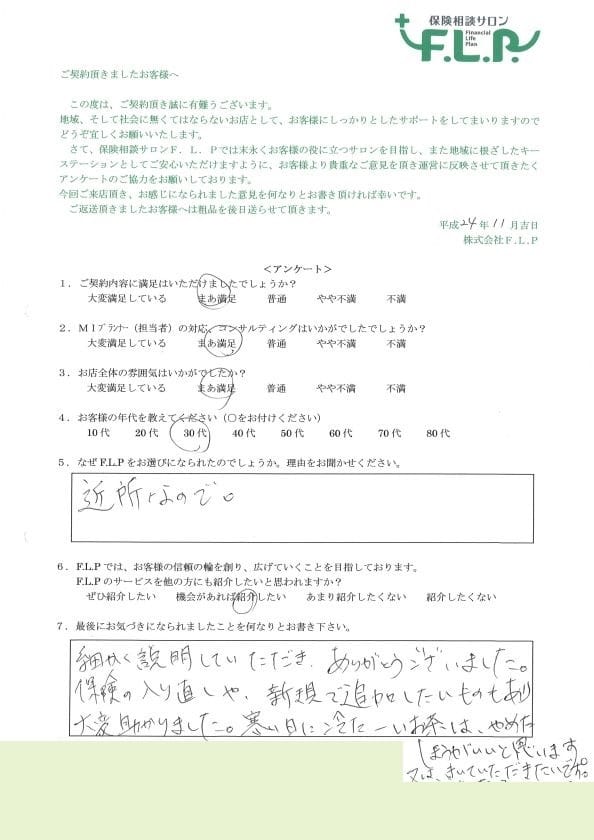 保険相談サロン
F.L.P.
Financial
Life
Plan
ご契約頂きましたお客様へ
この度は、ご契約頂き誠に有難うございます。
地域、そして社会に無くてはならないお店として、お客様にしっかりとしたサポートをしてまいりますので
どうぞ宜しくお願いいたします。
さて、保険相談サロンＦ．Ｌ．Ｐでは末永くお客様の役に立つサロンを目指し、また地域に根ざしたキー
ステーションとしてご安心いただけますように、お客様より貴重なご意見を頂き運営に反映させて頂きたく
アンケートのご協力をお願いしております。
今回ご来店頂き、お感じになられました意見を何なりとお書き頂ければ幸いです。
ご返送頂きましたお客様へは粗品を後日送らせて頂きます。
平成24年11月吉日
株式会社F.L.P
＜アンケート＞
１．ご契約内容に満足はいただけましたでしょうか？
大変満足している まあ満足 普通 やや不満 不満
２．ＭＩﾌﾟﾗﾝﾅｰ（担当者）の対応、コンサルティングはいかがでしたでしょうか？
大変満足している まあ満足 普通 やや不満 不満
３．お店全体の雰囲気はいかがでしたか？
大変満足している まあ満足 普通 やや不満 不満
４．お客様の年代を教えてください（○をお付けください）
10代 20代 30代 40代 50代 60代 70代 80代
５．なぜF.L.Pをお選びになられたのでしょうか。理由をお聞かせください。
近所なので。
６．F.L.Pでは、お客様の信頼の輪を創り、広げていくことを目指しております。
F.L.Pのサービスを他の方にも紹介したいと思われますか？
ぜひ紹介したい 機会があれば紹介したい あまり紹介したくない 紹介したくない
７．最後にお気づきになられましたことを何なりとお書き下さい。
細かく説明していただき、ありがとうございました。
保険の入り直しや、新規で追加したいものもあり
大変助かりました。寒い日に冷たーいお茶は、やめた
ほうがいいと思います
又は、きいていただきたいです。